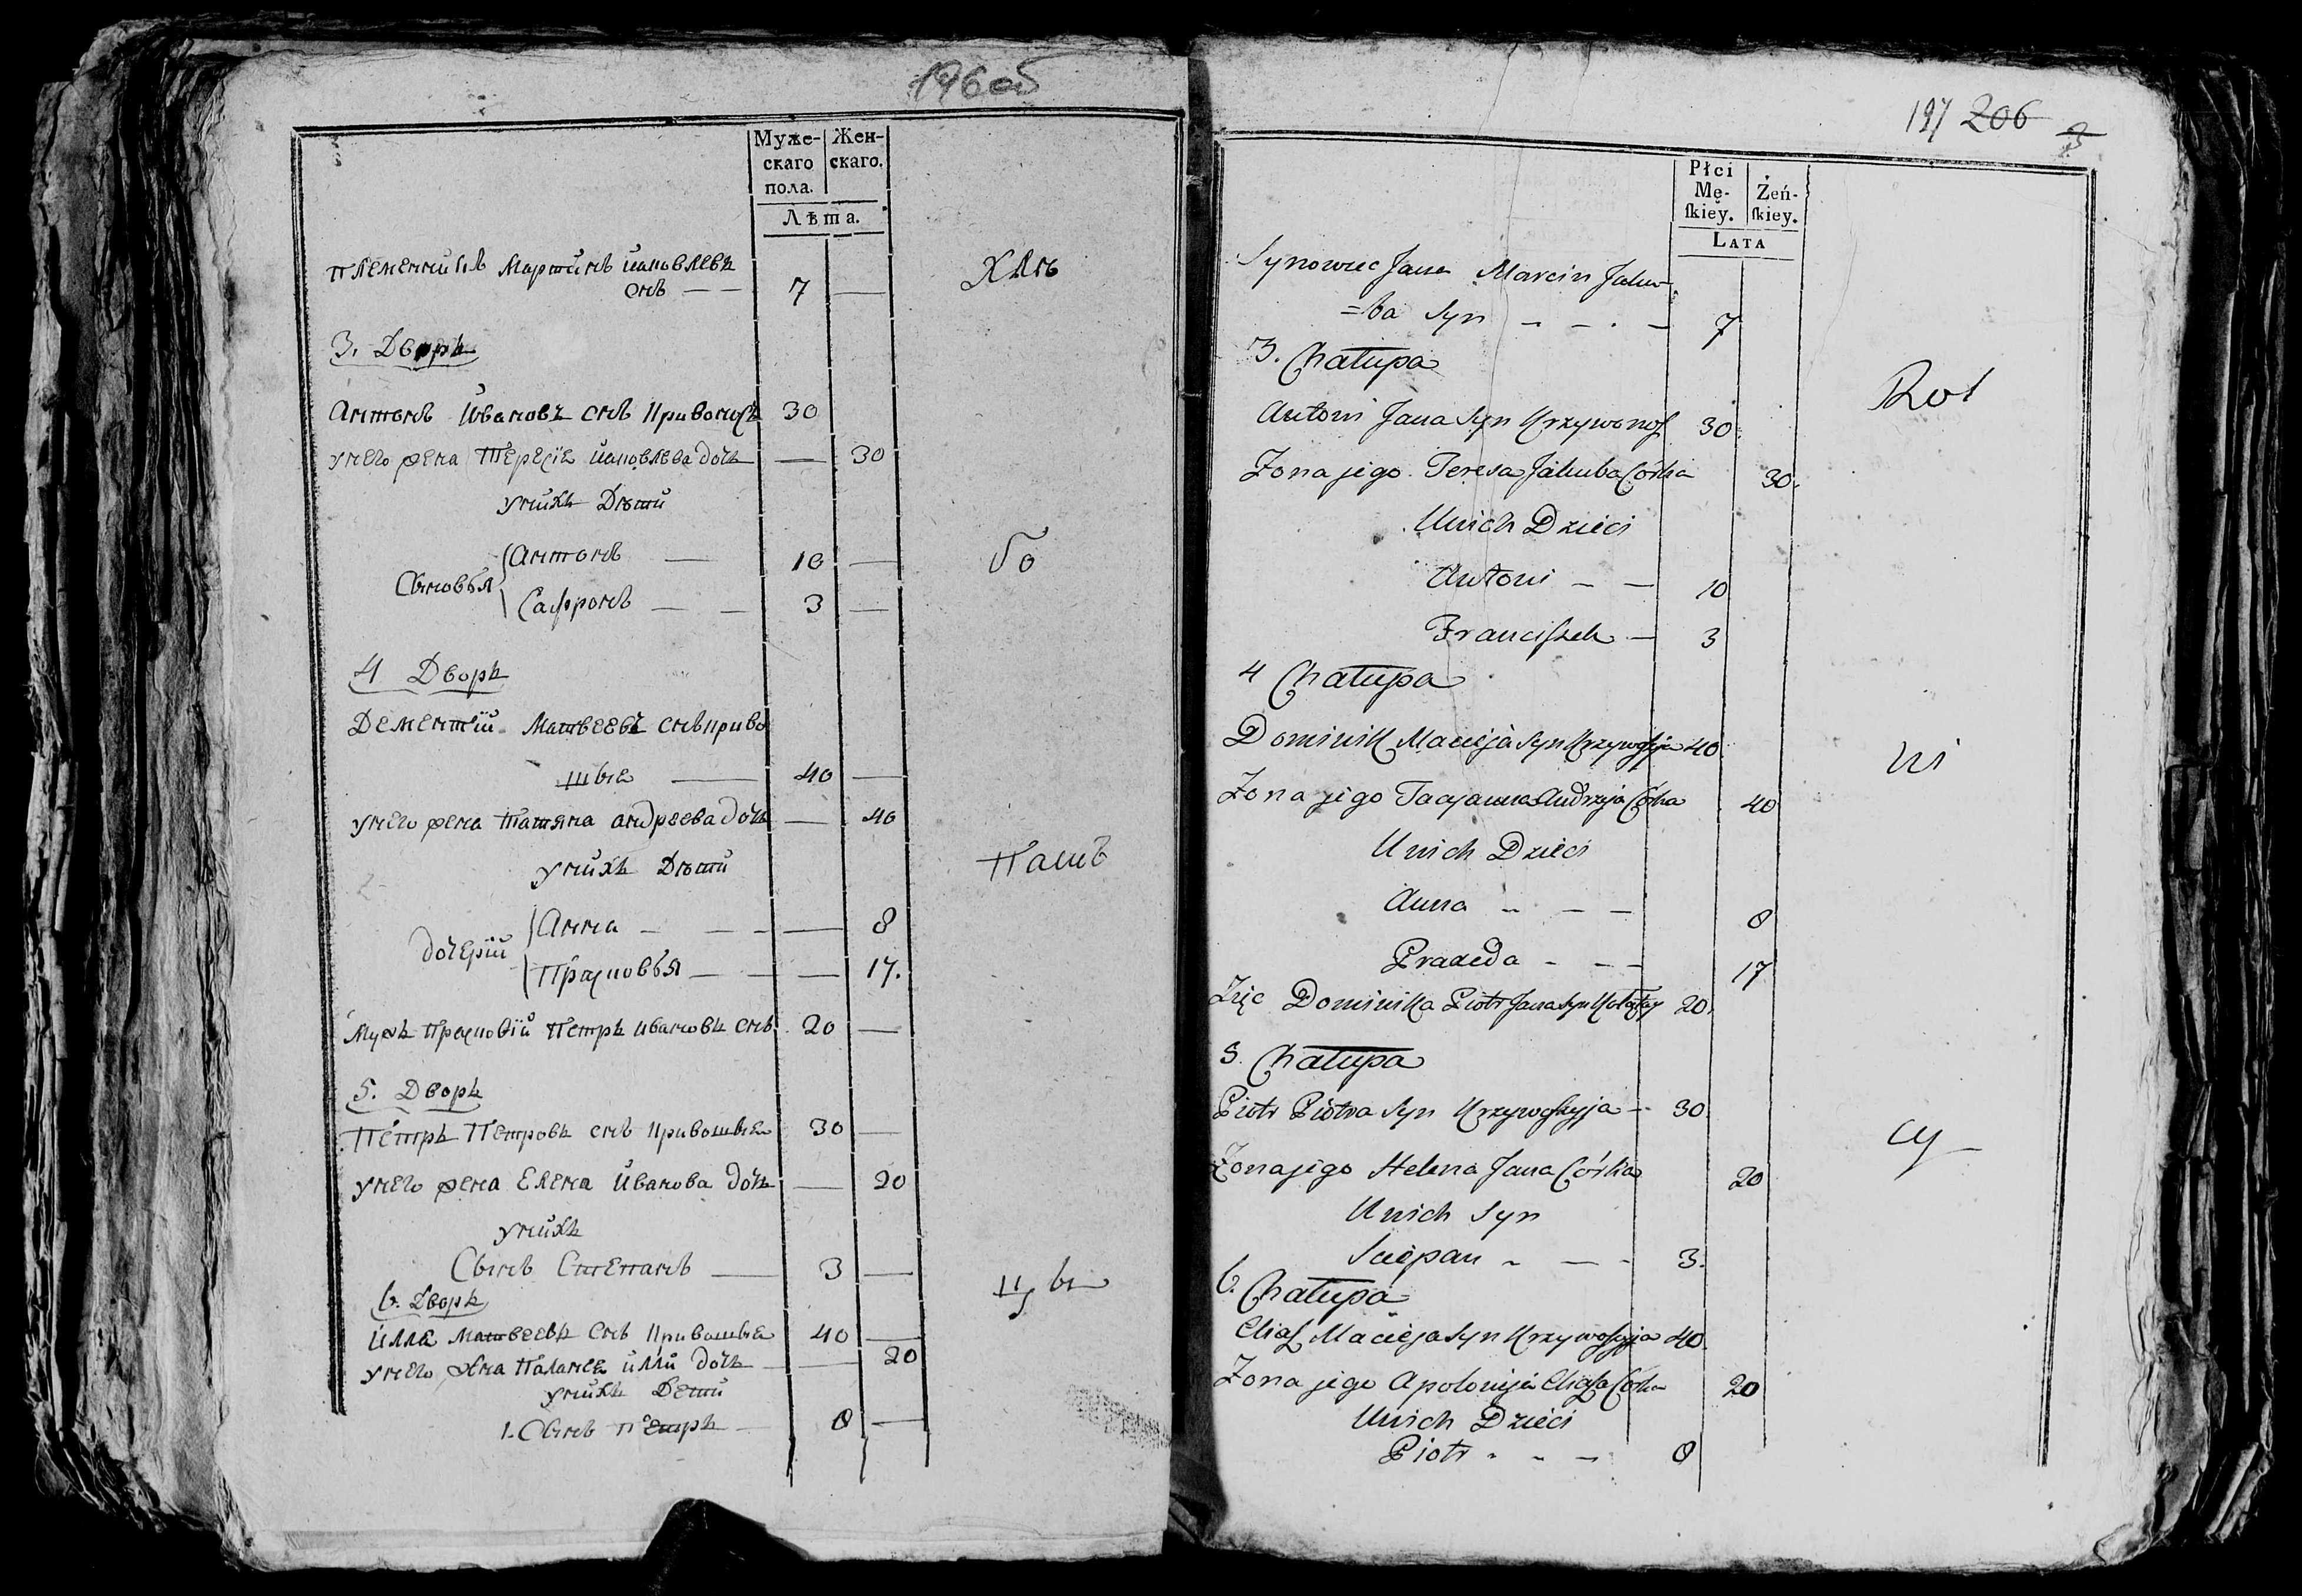 196об
Муже-
скаго
пола.
Жен-
скаго.
Лѣта.
Племянникъ Мартинъ Яковлевъ
снъ — — 7 —
Хлѣ
3. Дворъ
Антонъ Ивановъ снъ Кривоносъ 30
у него жена Терезiя Яковлева дочь — 30
у нихъ Дѣти
Сыновья
Антонъ — 10 —
Сафронъ — — 3 —
бо
4 Дворъ
Дементiй Матвеевъ снъ Криво
шыя — 40 —
у него жена Татяна Андреева дочь — 40
у нихъ Дѣти
дочерiй
Анна — — — — 8
Прасковья — — — 17.
пашъ
Мужъ Прасковiи Петръ Ивановъ снъ 20 —
5. Дворъ
Петръ Петровъ снъ Кривошыя 30 —
у него жена Елена Иванова дочь — 20
у нихъ
Сынъ Степанъ — 3 —
6. Дворъ
цы
Илля Матвеевъ снъ Кривошыя 40 —
у него жена Паланея Илли дочь — 20
у нихъ Дети
1. Сынъ Петръ — 8 —
197 206
3
Płci
Mę-
ſkiey.
Żeń-
ſkiey.
LATA
Synowiec Jana Marcin Jaku-
=ba Syn – – . – 7
3. Chałupa
Rol
Antoni Jana Syn Krzywonos 30
Żona jego Teresa Jakuba Córka 30.
U nich Dzieci
Antoni – – 10
Franciſzek – 3
4 Chałupa
Dominik Macieja Syn Krzywoſzyja 40
ni
Żona jego Tacyanna Andrzeja Córka 40
U nich Dzieci
Anna – – – 8
Praxeda – – – 17
Zięć Dominika Piotr Jana Syn 20.
5. Chałupa
Piotr Piotra Syn Krzywoſzyja – 30.
cy
Żona jego Helena Jana Córka 20
U nich Syn
Sciepan – – – 3.
6. Chałupa
Eliaſz Macieja Syn Krzywoſzyja 40.
Żona jego Apolonija Eliaſza Córka 20
U nich Dzieci
Piotr – – – 8